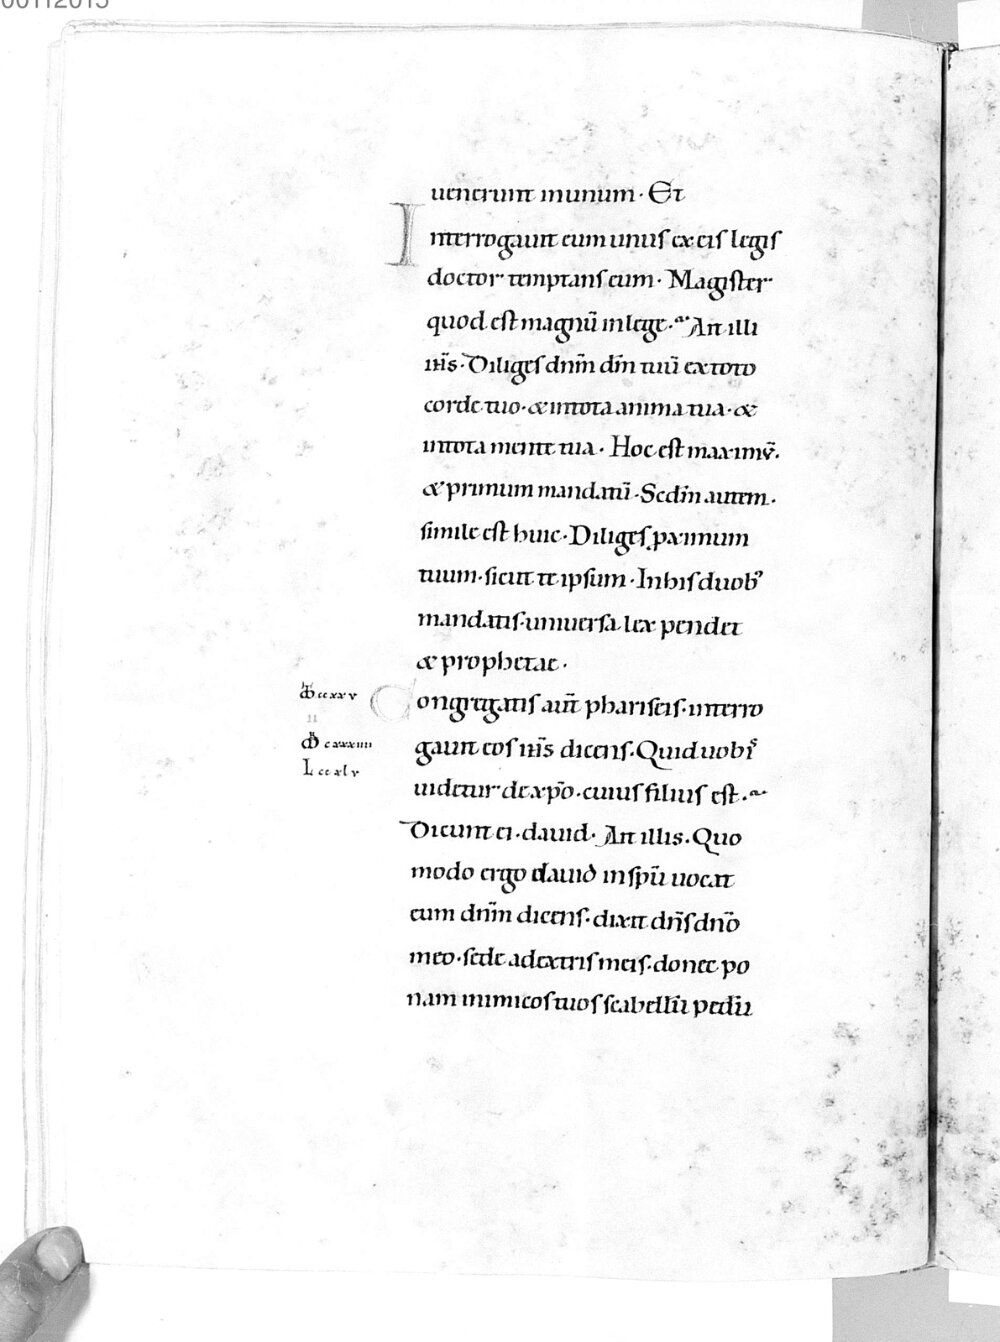 00112013
uenerunt inunum · Et
Interrogauit eum unus ex eis legis
doctor temptans eum · Magister
quod est magnū inlege · Ait illi
iħs · Diliges dn̄m dm̄ tuū ex toto
corde tuo · & intota anima tua · &
intota mente tua · Hoc est maximū ·
& primum mandatū · Secdm̄ autem ·
simile est huic · Diliges ꝓximum
tuum · sicut te ipsum · In his duobꝰ
mandatis · uniuersa lex pendet
& prophetae ·
Congregatis aut̄ phariseis · interro
gauit eos iħs dicens · Quid uobis
uidetur de xp̄o · cuius filius est ·
Dicunt ei · dauid · Ait illis · Quo
modo ergo dauid in spū uocat
eum dn̄m dicens · dixit dn̄s dn̄o
meo · sede adextris meis · donec po
nam inimicos tuos scabellū pedū
ccxxv
ii
cxxxiiii
L ccxlv